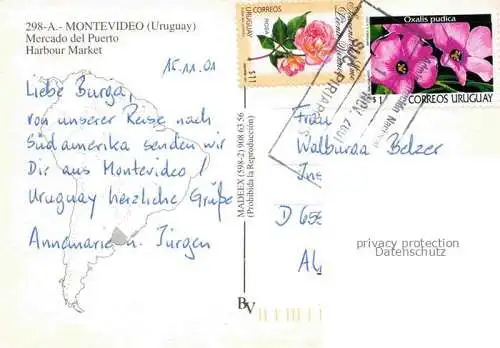 298-A.- MONTEVIDEO (Uruguay)
Mercado del Puerto
Harbour Market
15.11.01
Liebe Burga,
von unserer Reise nach
Südamerika senden wir
Dir aus Montevideo /
Uruguay herzliche Grüße
Annemarie u. Jürgen
MADEEX (598-2) 908 63 56
(Prohibida la Reproducción)
BV
CORREOS
URUGUAY
ROSA
$11
Oxalis pudica
$1
CORREOS URUGUAY
PIRIAPOLIS
Frau
Walburga Belzer
Ins
D 656
Al
privacy protection
Datenschutz